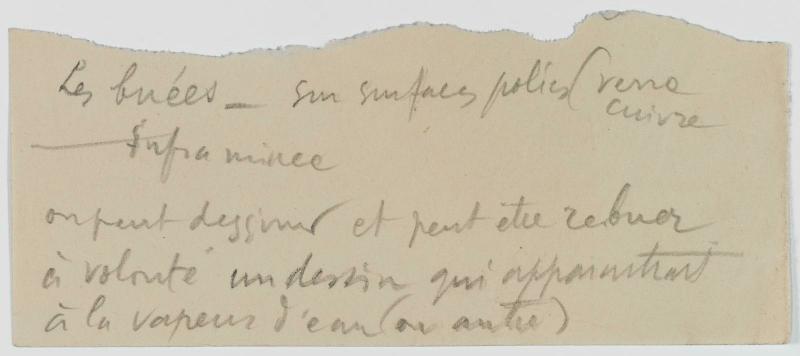 Les buées — sur surfaces polies (verre
cuivre
infra mince
on peut dessiner et peut être rebuer
à volonté un dessin qui apparaitrait
à la vapeur d'eau (ou autre)